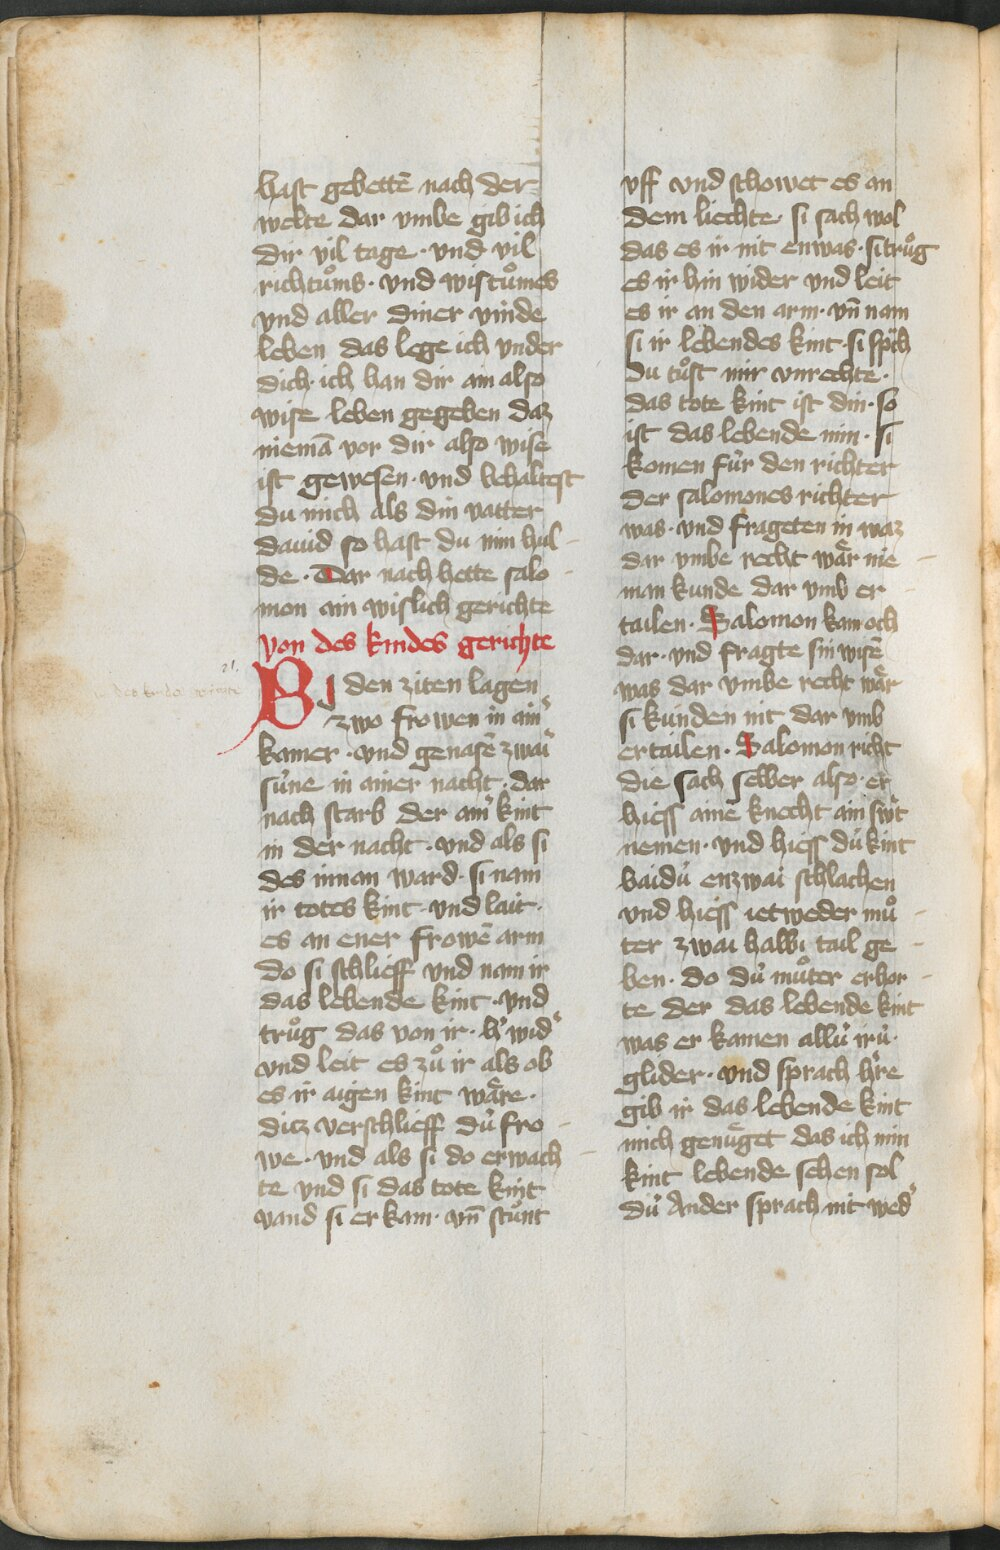 hast gebettē nach der
welte dar vmbe gib ich
dir vil tage · vnd vil
richtuͦms · vnd wistuͦmes
vnd aller diner vinde
leben das lege ich vnder
dich · ich han dir ain also
wise leben gegeben daz
niemā vor dir also wise
ist gewesen · vnd behaltest
du mich als din vatter
dauid so hast du min hul-
de · Dar nach hette salo-
mon ain wislich gerichte
von des kindes gerichte
21.
des kindes gerichte
BJ den ziten lagen
zwo frowen in ain͛
kamer · vnd genasē zwai
suͤne in ainer nacht · dar
nach starb der ain͛ kint
in der nacht · vnd als si
des innan ward · si nam
ir totes kint · vnd lait ·
es an ener frowē arm
do si schlieff vnd nam ir
das lebende kint · vnd
truͦg das von ir · h͛ wid͛
vnd leit es zuͦ ir als ob
es ir aigen kint waͤre ·
dicz verschlieff duͤ fro-
we · vnd als si do erwach-
te vnd si das tote kint
vand si er kam · vn̄ stuͦnt
vff vnd schowet es an
dem liechte · si sach wol
das es ir nit enwas · si truͦg
es ir hin wider vnd leit
es ir an den arm · vn̄ nam
si ir lebendes kint · si sp͛ch
Du tuͦst mir vnrechte ·
das tote kint ist din · so
ist das lebende min · si
komen fuͤr den richter
der salomones richter
was · vnd frageten in waz
dar vmbe recht waͤr nie-
man kunde dar vmb er-
tailen · Salomon kam och
dar · vnd fragte sin wisē
was dar vmbe recht waͤr
si kunden nit dar vmb
ertailen · Salomon richt
die sach selber also · er
hiess aine knecht ain sw͛t
nemen · vnd hiess duͤ kint
baiduͤ enzwai schlachen
vnd hiess ietweder muͦ-
ter zwai halbi tail ge-
ben · do duͤ muͦter erhor-
te der das lebende kint
was er kamen alluͤ iruͤ ·
glider · vnd sprach h͛re
gib ir das lebende kint
mich genuͤget das ich min
kint lebende sehen sol
duͤ Ander sprach nit wed͛